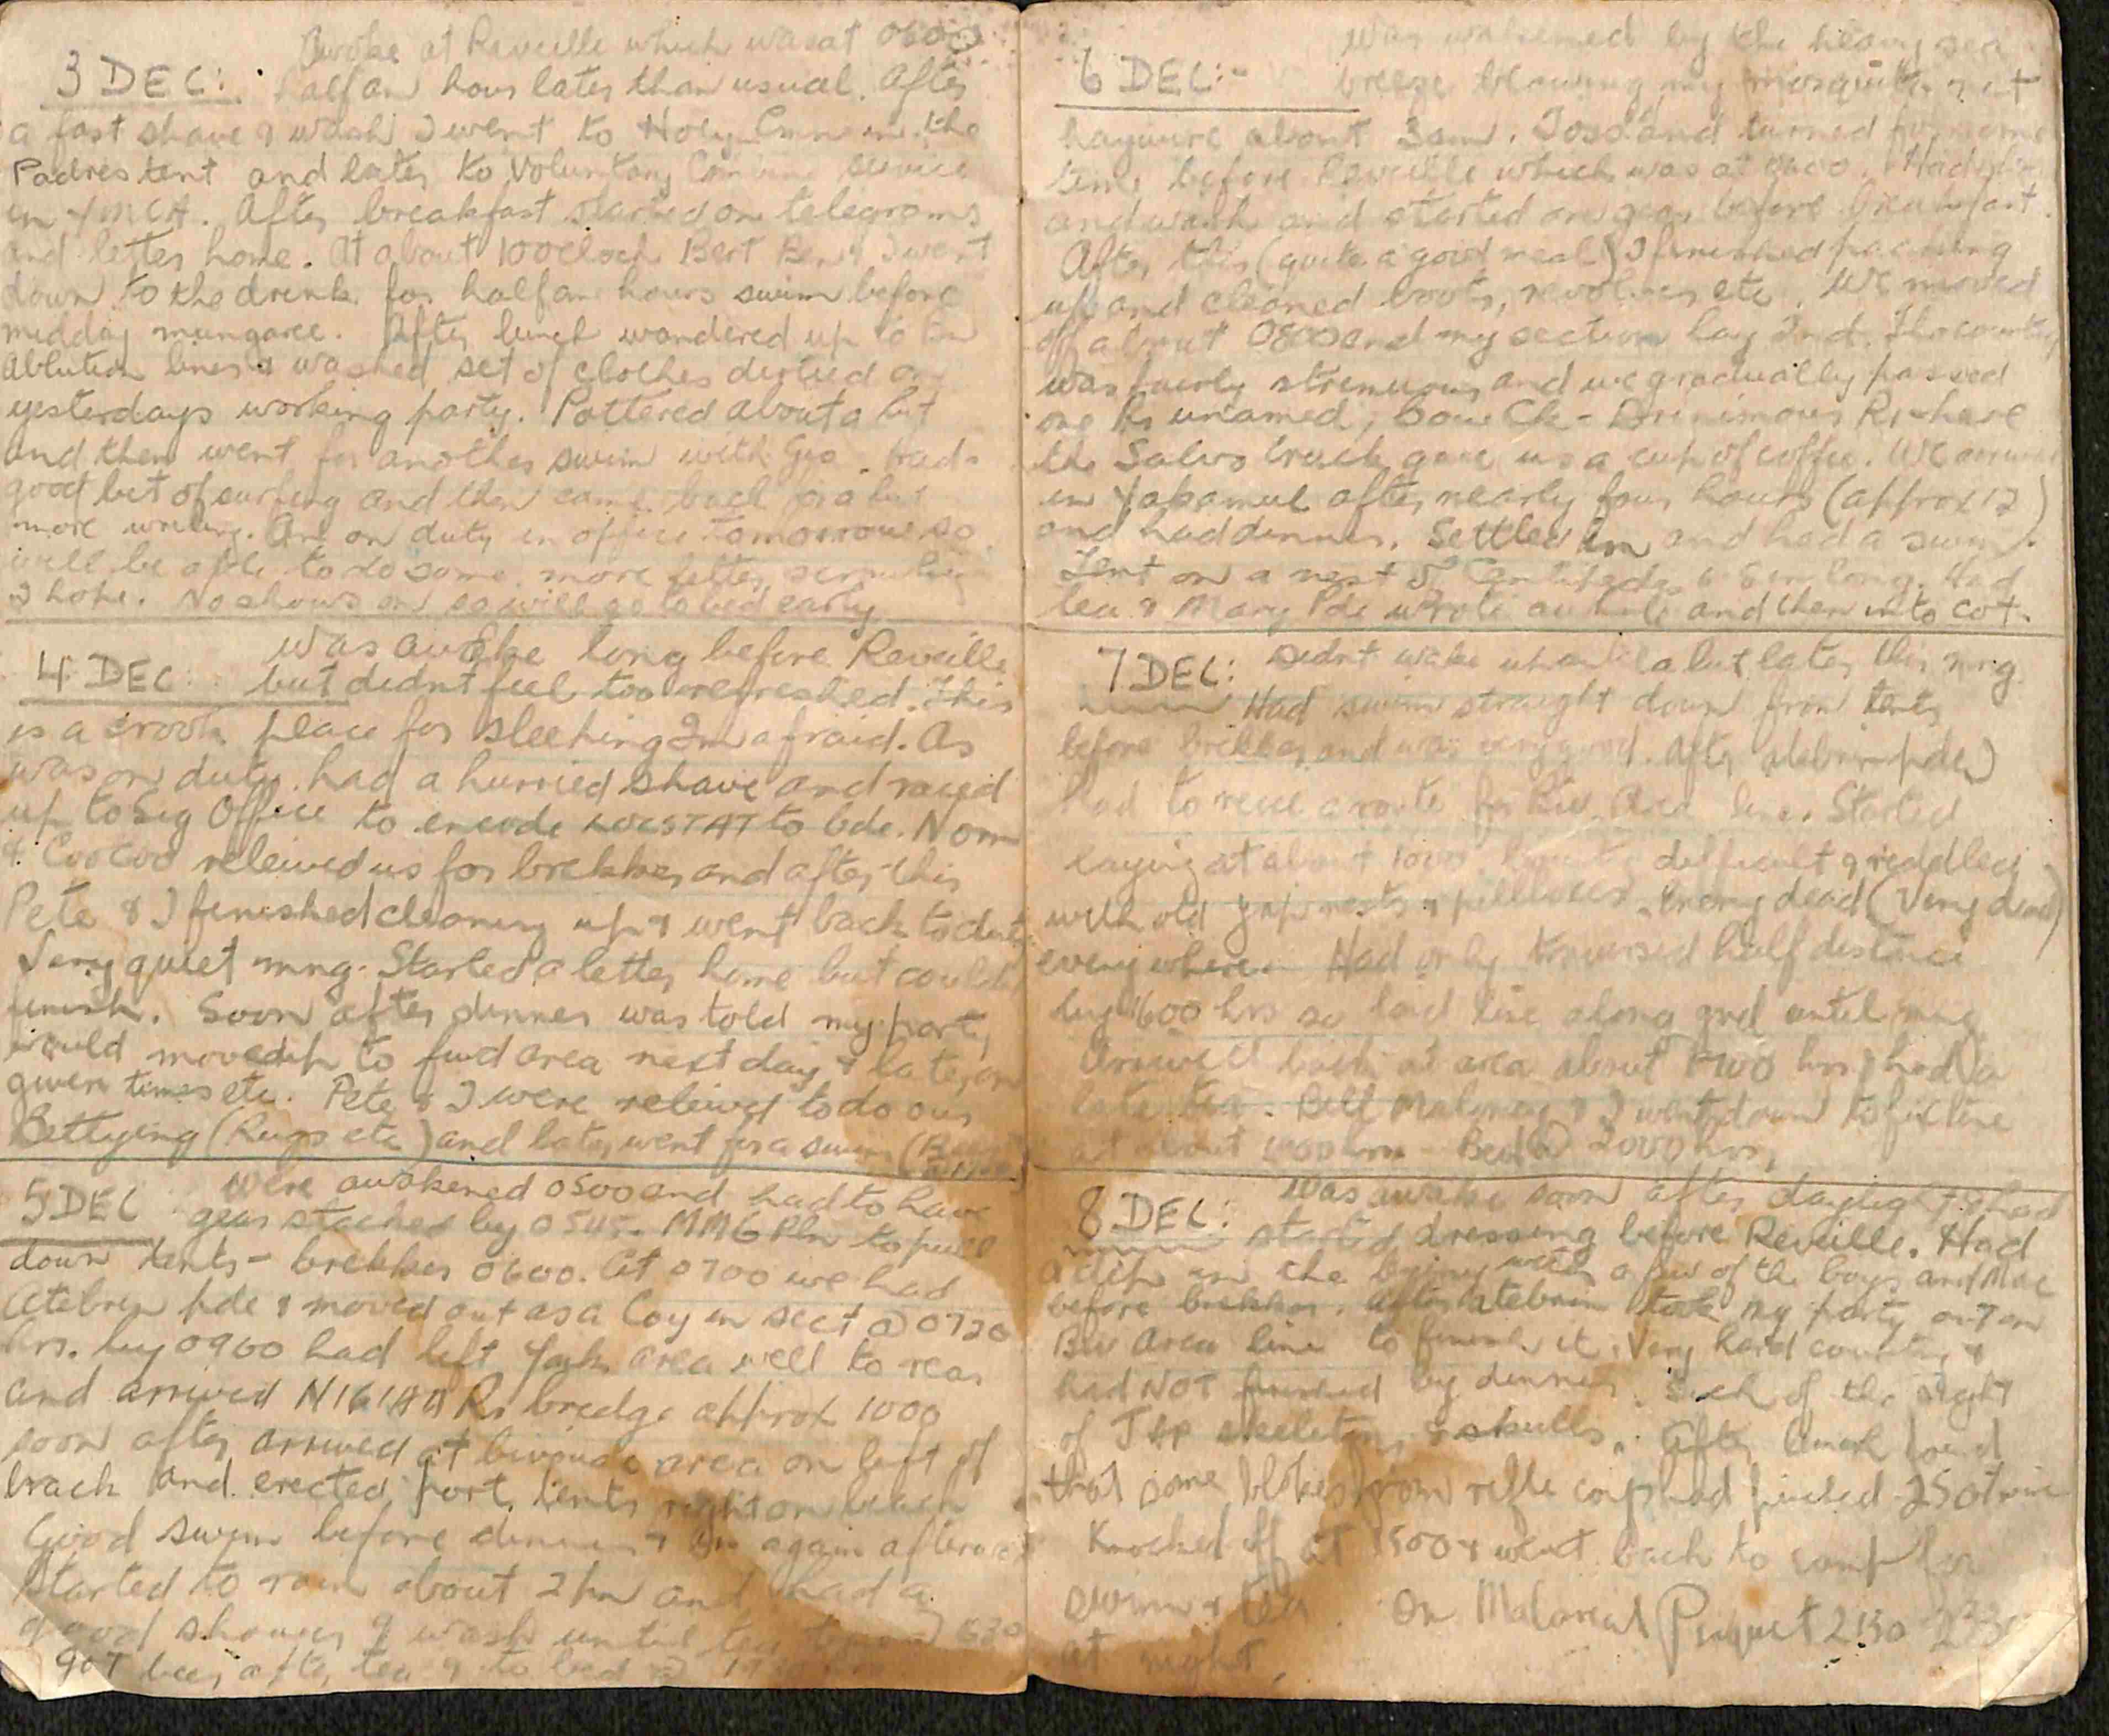 3 DEC: Awoke at Reveille which was at 0600
half an hour later than usual. After
a fast shave & wash I went to Holy in the
Padres tent and later to Voluntary service
in YMCA. After breakfast started on telegrams
and letter home. At about 10 oclock Bert Ben & I went
down to the drink for half an hours swim before
midday mungaree. After lunch wandered up to
Ablution lines & washed set of clothes dirtied on
yesterdays working party. Pottered about a bit
and then went for another swim with Geo. Had
good bit of surfing and then came back for a bit
more writing. Am on duty in office tomorrow so
will be able to do some more letter
I hope. No shows on so will go to bed early
4 DEC: Was awake long before Reveille
but didnt feel too refreshed. This
is a crook place for sleeping Im afraid. As
was on duty had a hurried shave and raced
up to Sig Office to encode LOCSTAT to bde. Norm
& releived us for brekker and after this
Pete & I finished cleaning up & went back to duty
Very quiet mng. Started a letter home but couldnt
finish. Soon after dinner was told my party
would move up to fwd area next day & later on
given times etc. Pete & I were releived to do our
Bettying (Rugs etc) and later went for a swim
5 DEC Were awakened 0500 and had to have
gear stacked by 0545. MMG Pln to pull
down tents - brekker 0600. At 0700 we had
Atebrin pde & moved out as a Coy in sect @ 0720
hrs. by 0900 had left area well to rear
and arrived NIGIAA R. bridge approx 1000
soon after arrived at bivouac area on left of
track and erected tents right on beach
Good swim before dinner & again afterwards
Started to rain about 2 pm and had a
good shower & wash until tea 1630
got beer after tea & to bed @
6 DEC:- Was wakened by the heavy sea
breeze blowing my mosquito net
haywire about 3am. Tossed and turned for some
time before Reveille which was at 0600. Had
and wash and started on gear before breakfast.
After this (quite a good meal) I finished packing
up and cleaned boots, revolver etc. We moved
off about 0800 and my section lay 2nd. The country
was fairly strenuous and we gradually passed
one R. unamed, Ck - Driniumor R. where
the Salvo truck gave us a cup of coffee. We arrived
in Yakamul after nearly four hours (approx 12)
and had dinner. Settled in and had a swim.
Tent on a nest of Centipedes 6-8 in long. Had
tea & Mary Pde wrote awhile and then into cot.
7 DEC: Didnt wake until a bit later this mng.
Had swim straight down from tents
before brekker and was very good. After atebrin pde
had to recce a route for Biv. Area line. Started
laying at about 1000. difficult & riddled
with old Jap nests & pillboxes. Enemy dead (Very dead)
everywhere. Had only traversed half distance
by 1600 hrs so laid line along gnd until mng
Arrived back at area about 1700 hrs & had a
late tea. Bill Maloney & I went down to fix line
at about - Bed @ 2000 hrs.
8 DEC: Was awake soon after daylight & had
started dressing before Reveille. Had
a dip in the briny with a few of the boys and Mac
before brekker. After atebrin took my party out on
Biv Area line to finish it. Very hard country &
had NOT finished by dinner. Sick of the sight
of Jap skeletons & skulls. After lunch found
that some blokes from rifle coys had pinched 250x wire
Knocked off at 1500 & went back to camp for
swim & tea. On Malarial Picquet 2130 2330
at night.